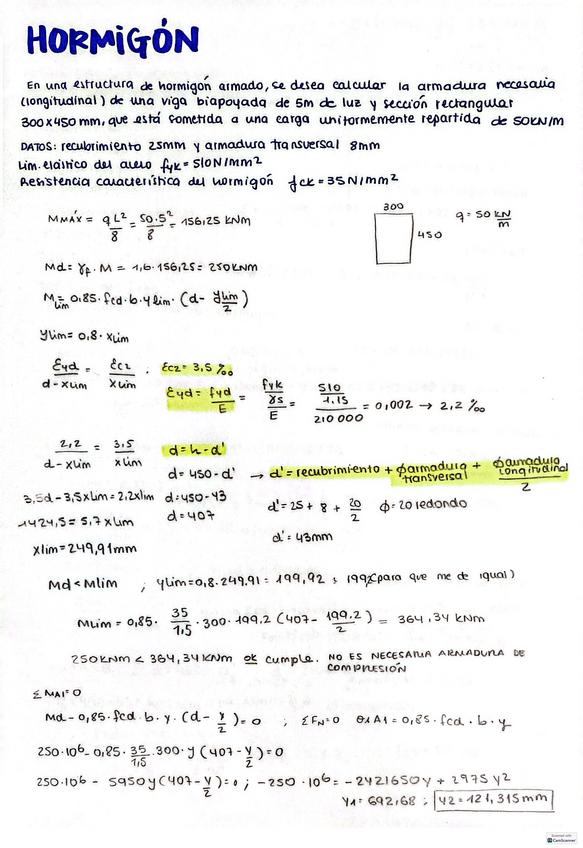 HORMIGÓN
En una estructura de hormigón armado, se desea calcular la armadura necesaria
(longitudinal) de una viga biapoyada de 5m de luz y sección rectangular
300x450mm, que está sometida a una carga uniformemente repartida de 50KN/m
DATOS: recubrimiento 25mm y armadura transversal 8mm
Lim. elástico del acero fyk = 510N/mm²
Resistencia característica del hormigón fck = 35N/mm²
MMÁX = qL²/8 = 50·5²/8 = 156,25 KNm
300
450
q = 50 KN/m
Md = γf · M = 1,6·156,25 = 250KNm
Mlim = 0,85·fcd·b·ylim·(d - ylim/2)
ylim = 0,8·xlim
Eyd/(d-xlim) = Ec2/xlim ; Ec2 = 3,5‰
Eyd = fyd/E = (fyk/γs)/E = (510/1,15)/210 000 = 0,002 → 2,2‰
2,2/(d-xlim) = 3,5/xlim
d = h - d'
d = 450 - d' → d' = recubrimiento + ϕarmadura transversal + ϕarmadura longitudinal/2
3,5d - 3,5xlim = 2,2xlim
d = 450 - 43
d' = 25 + 8 + 20/2
ϕ = 20 redondo
1424,5 = 5,7xlim
d = 407
d' = 43mm
xlim = 249,91mm
Md < Mlim ; ylim = 0,8·249.91 = 199,92 (para que me de igual)
Mlim = 0,85· 35/1,5 ·300·199.2 (407 - 199.2/2) = 364,34 KNm
250KNm < 364,34KNm ok cumple. NO ES NECESARIA ARMADURA DE
COMPRESIÓN
ΣMA1=0
Md - 0,85·fcd·b·y·(d - y/2) = 0 ; ΣFN=0 A1 = 0,85·fcd·b·y
250·10⁶ - 0,85· 35/1,5 ·300·y (407 - y/2) = 0
250·10⁶ - 5950y (407 - y/2) = 0 ; -250·10⁶ = -2421650y + 2975y²
y1 = 692,68 ; y2 = 121,315mm
CamScanner